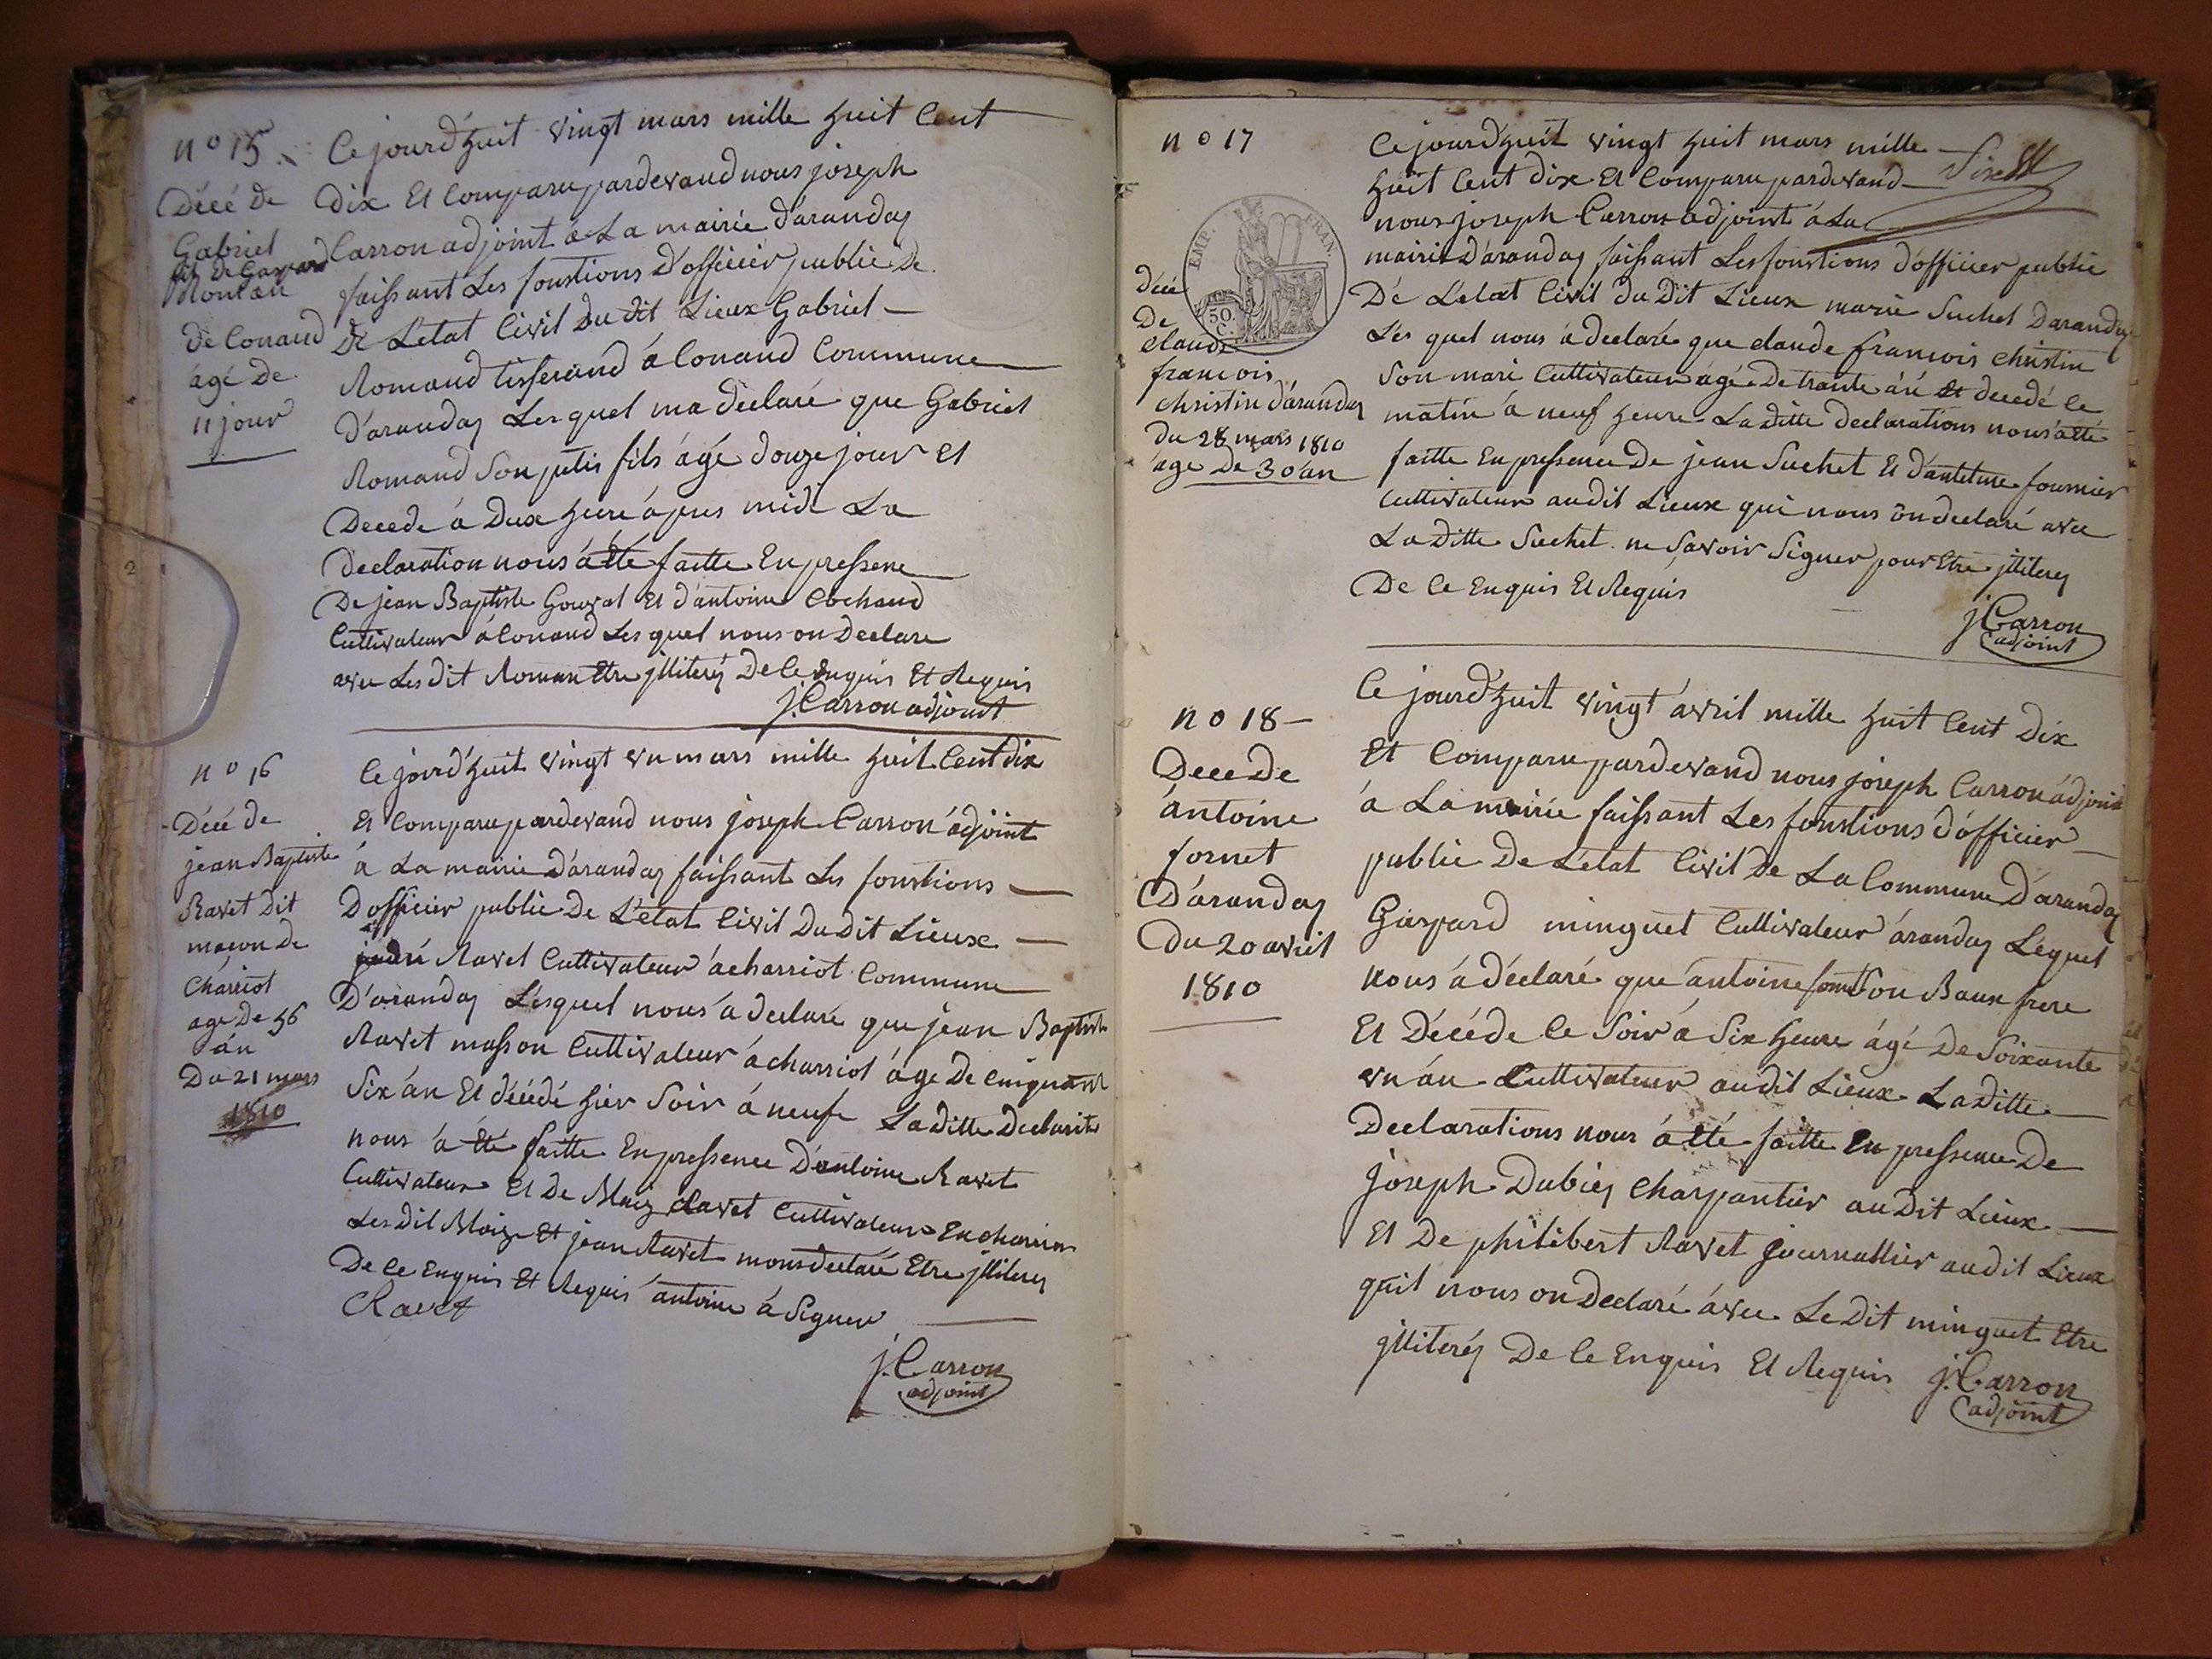 n o 15
Décé de
Gabriel
fils de Gaspard
Roman
de Conand
ágé de
11 jour
Cejourd'huit vingt mars mille huit Cent
dix Et Comparu pardevand nous joseph
Carron adjoint á La mairie d'aranday
faissant Les fonstions d'officier public de
de Letat Civil du dit Lieux Gabriel
Romand tisserand á Conand Commune
d'aranday Lesquel ma déclaré que Gabriel
Romand Son petis fils ágé d'onze jour Et
Decede á Deux heure ápres midi La
Declaration nous á été faitte En pressene
De jean Baptiste Gouvat Et d'antoine Cochaud
Cultivateur á Conand Lesquel nous on Declare
avec Les dit Roman Etre jlliterés De Ce Enquis Et Requis
j. Carron adjoint
n o 16
Décé de
jean Baptiste
Ravet dit
maçon de
Charriot
age De 56
án
Du 21 mars
1810
Ce jourd'huit vingt un mars mille huit Cent dix
Et Comparu pardevand nous joseph Carron adjoint
á La mairie d'aranday faissant Les fonstions
D'officier public de L'état Civil Du Dit Lieux
Ravet Cultivateur ácharriot Commune
D'aranday Lesquel nous á declaré que jean Baptiste
Ravet masson Cultivateur á charriot ágé De Cinquante
Six án Et décédé hier Soir á neufe La ditte
nous á été faitte En pressence D'antoine Ravet
Cultivateur Et De Ravet Cultivateur En
Les dit Et jean Ravet declaré Etre jlliterés
De Ce Enquis Et Requis antoine á Signer
Ravet
j. Carron
adjoint
n o 17
EMP. FRAN.
50
C.
décé
De
claude
francois
christin d'aranday
du 28 mars 1810
age de 30 an
Cejourd'huit vingt huit mars mille
huit Cent dix Et Comparu pardevand
nous joseph Carron adjoint á La
mairie D'aranday faissant Les fonstions d'officier public
De L'etat Civil du Dit Lieux marie Suchet Daranday
Les quel nous á declaré que claude francois christin
Son mari Cultivateur ágé De trante án Et decedé Ce
matin á neuf heure La ditte declarations nous á été
faitte En pressence De jean Suchet Et d'antoine fournier
Cultivateur audit Lieux qui nous on declaré avec
La Ditte Suchet ne Savoir Signer pour Etre jlliterés
De Ce Enquis Et Requis
j. Carron
adjoint
n o 18
Decede
ántoine
fornet
D'aranday
Du 20 avril
1810
Ce jourd'huit vingt ávril mille huit Cent Dix
Et Comparu pardevand nous joseph Carron ádjoint
á La mairie faissant Les fonstions d'officier
public De L'etat Civil De La Commune D'aranday
Gaspard minguet Cultivateur áranday Lequel
nous á déclaré que ántoine fornet Son Baux frere
Et Décéde Ce Soir á Six heure ágé De Soixante
un án Cultivateur audit Lieux La Ditte
Declarations nous á été faitte En pressence De
joseph Dubiey Charpantier au Dit Lieux
Et De philibert Ravet journallier audit Lieux
quil nous on Declaré ávec Le Dit minguet Etre
jlliterés De Ce Enquis Et Requis
j. Carron
adjoint